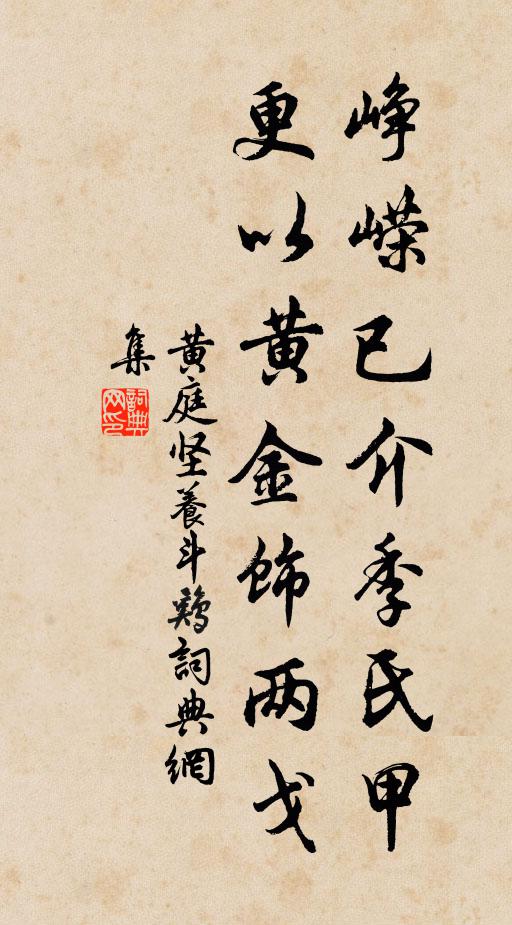 峥嵘已介季氏甲
更以黄金饰两戈
黄庭坚養斗鸡詞典網
集
詞典网印